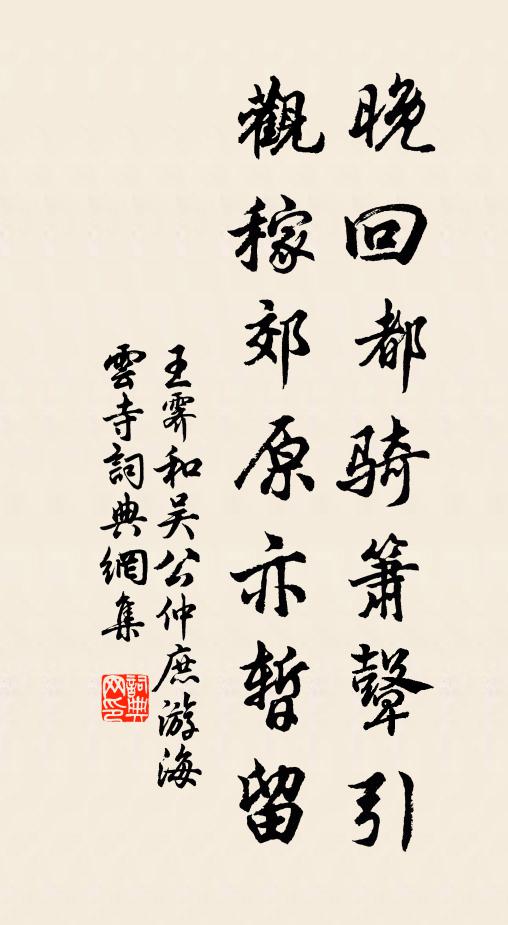 晚回都騎簫聲引
觀稼郊原亦暫留
王霽和吴公仲庶游海
雲寺詞典網集
詞典网印